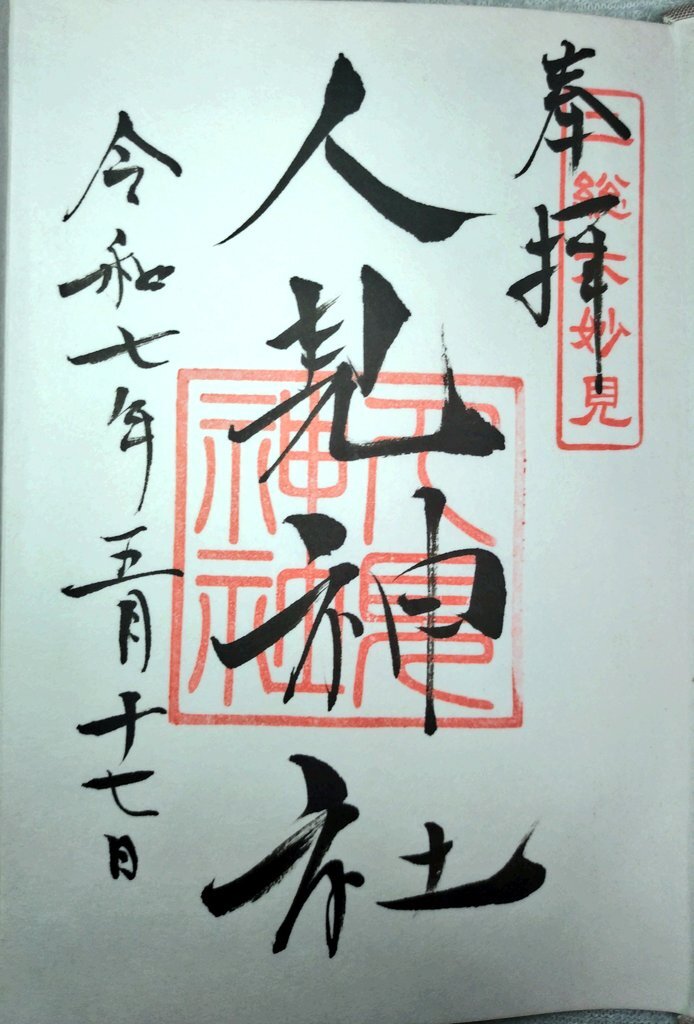 奉拝
妙見
人見神社
人見神社
令和七年五月十七日